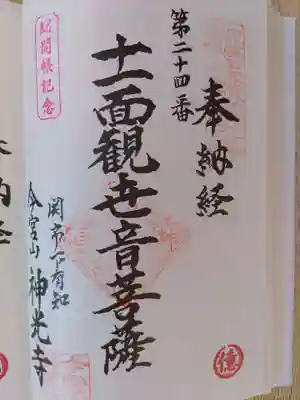 奉納経
第二十四番
十一面観世音菩薩
関市下有知
今宮山 神光寺
総開帳記念